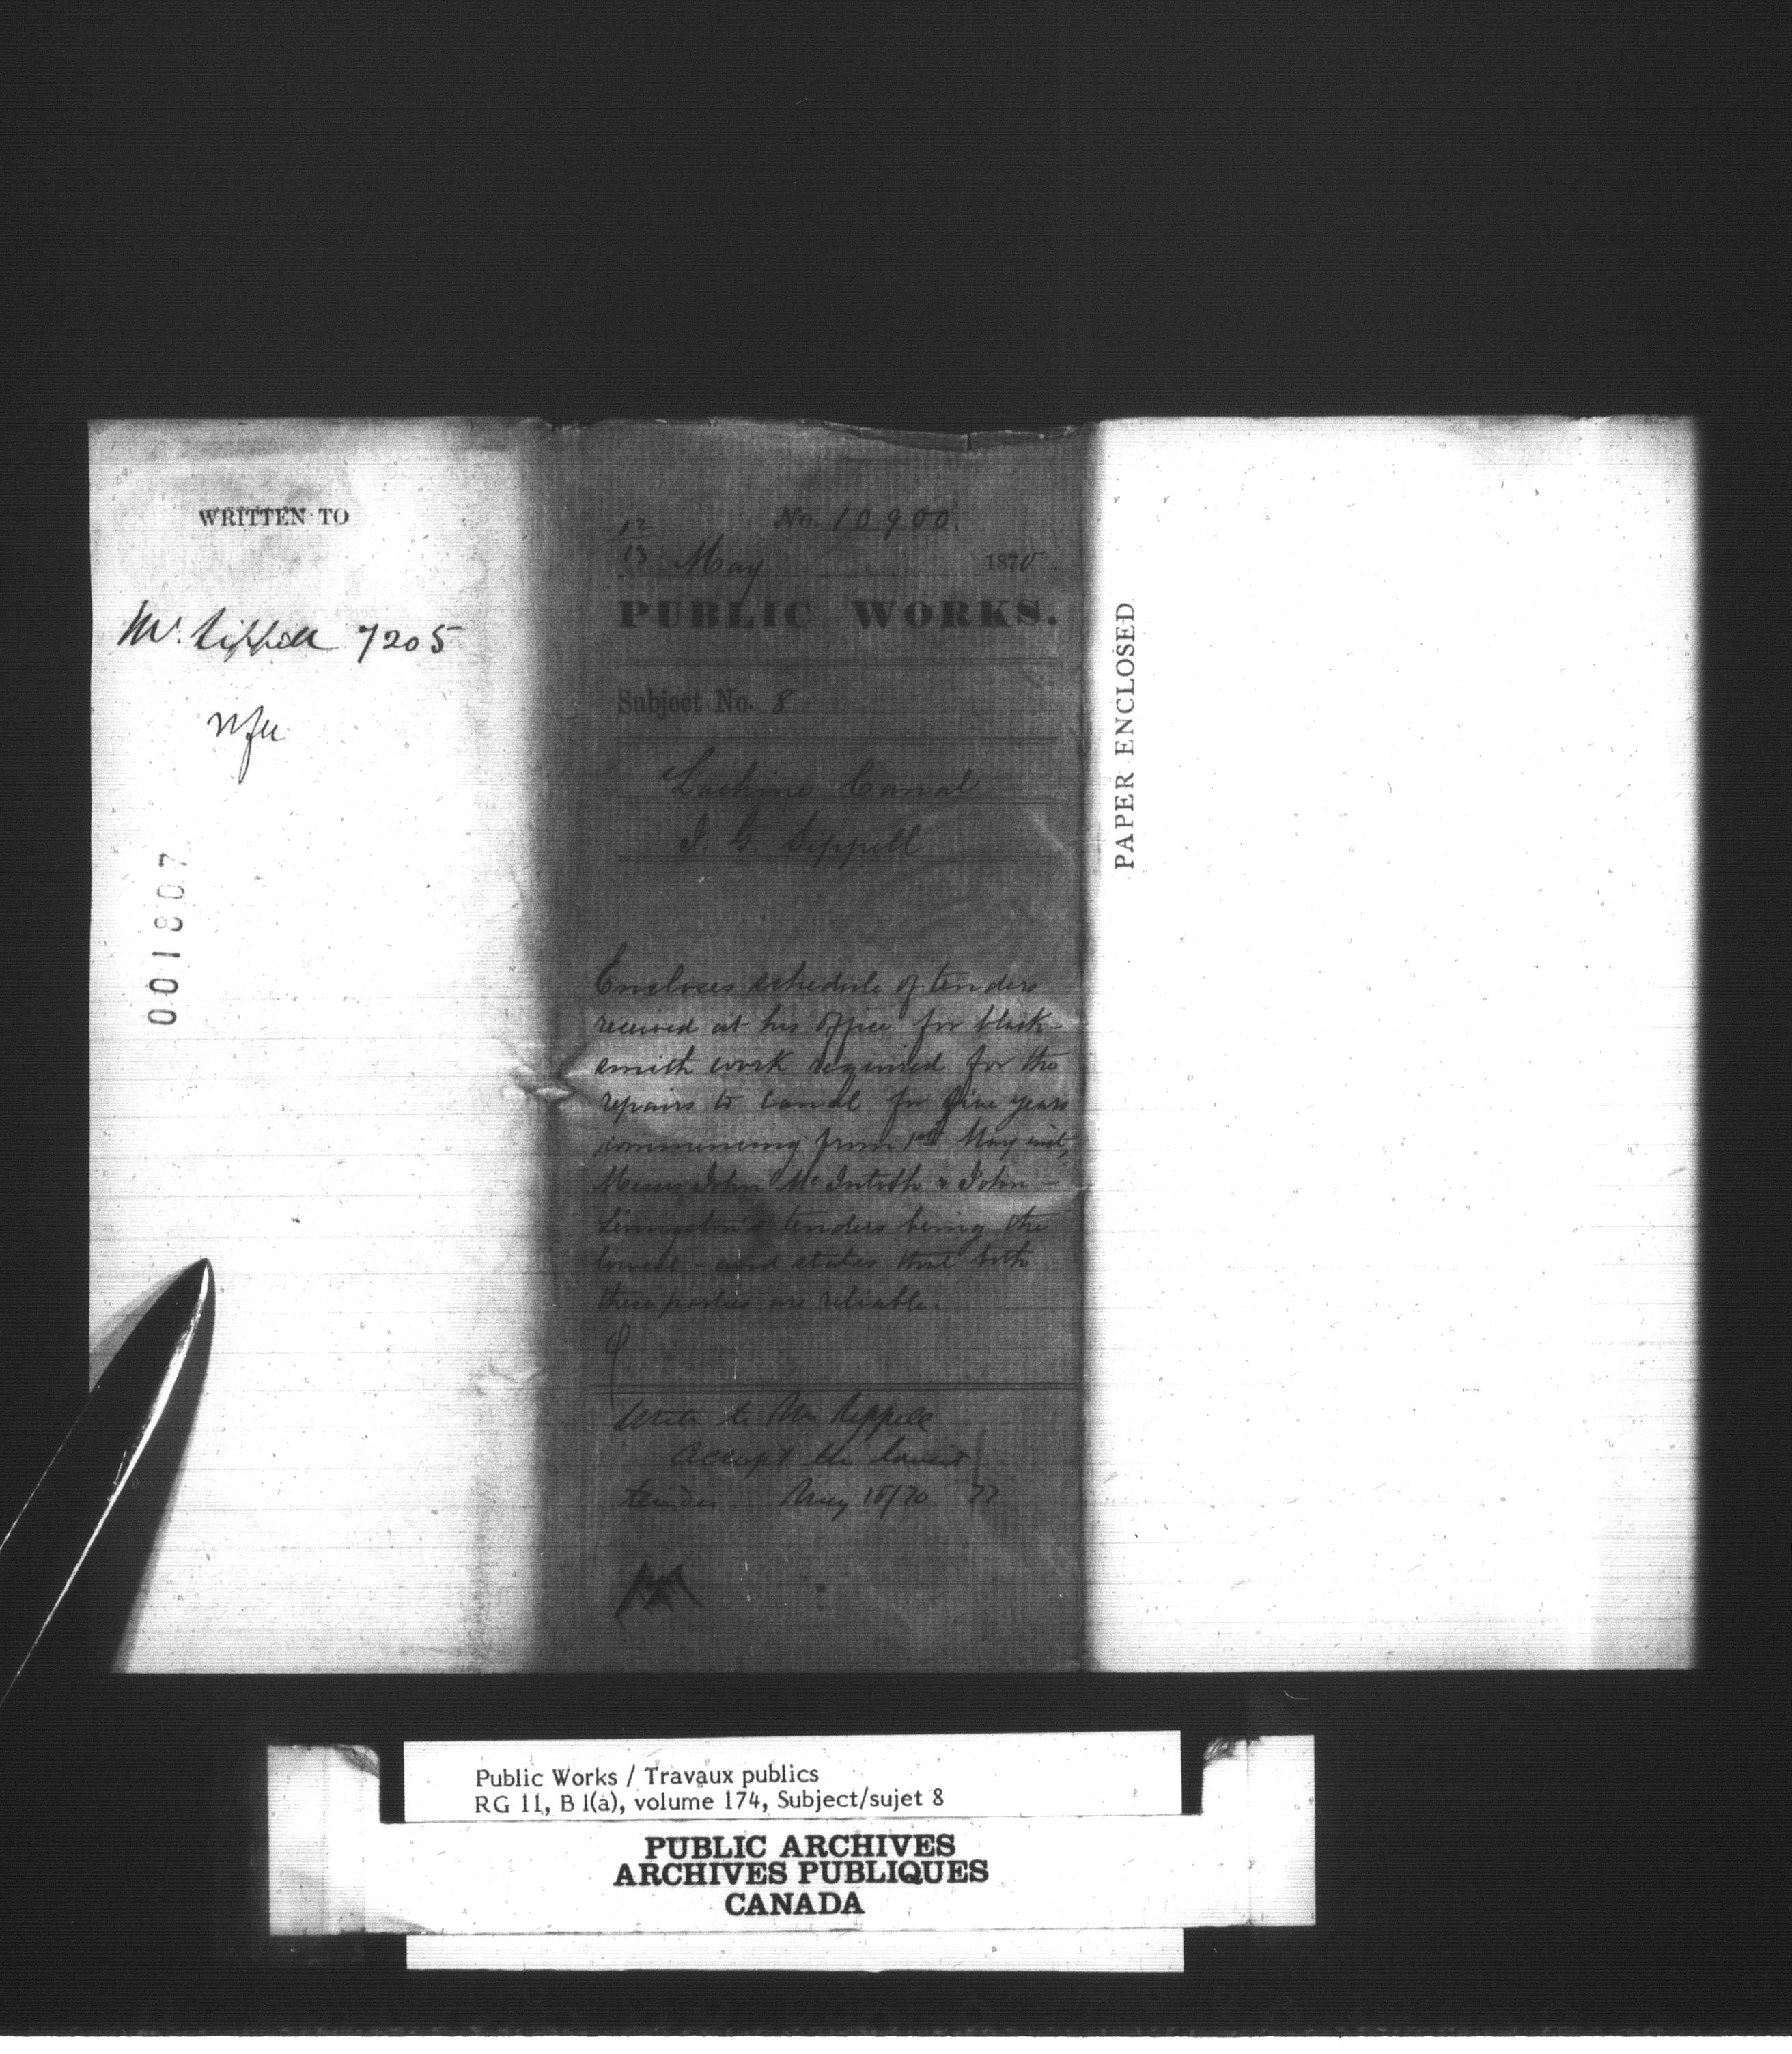 WRITTEN TO
Mr. Sippell 7205
001807
No. 10900.
12/13 May 1870.
PUBLIC WORKS.
Subject No. 8
Lachine Canal
J. G. Sippell
Encloses schedule of tenders
received at his office for black-
smith work required for the
repairs to canal for five years
commencing from 1st May inst,
Messrs John McIntosh & John -
Livingston's tenders being the
lowest - and states that both
these parties are reliable.
Write to Mr Sippell
Accept the lowest
tender. May 18/70
PAPER ENCLOSED
Public Works / Travaux publics
RG 11, B 1(a), volume 174, Subject/sujet 8
PUBLIC ARCHIVES
ARCHIVES PUBLIQUES
CANADA